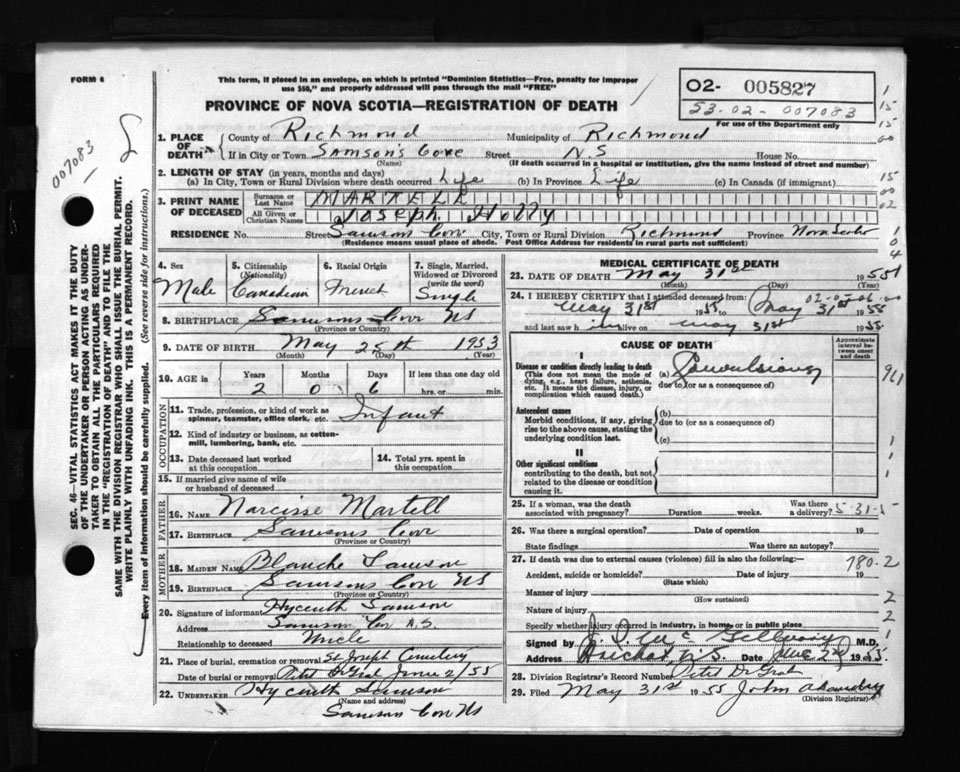 FORM 6
This form, if placed in an envelope, on which is printed "Dominion Statistics—Free, penalty for improper
use $50," and properly addressed will pass through the mail "FREE"
PROVINCE OF NOVA SCOTIA—REGISTRATION OF DEATH
02- 005827
53-02-007083
For use of the Department only
007083
SEC. 46—VITAL STATISTICS ACT MAKES IT THE DUTY
OF THE UNDERTAKER OR PERSON ACTING AS UNDER-
TAKER TO OBTAIN ALL THE PARTICULARS REQUIRED
IN THE "REGISTRATION OF DEATH" AND TO FILE THE
SAME WITH THE DIVISION REGISTRAR WHO SHALL ISSUE THE BURIAL PERMIT.
WRITE PLAINLY WITH UNFADING INK. THIS IS A PERMANENT RECORD.
Every item of information should be carefully supplied. (See reverse side for instructions.)
1. PLACE OF DEATH County of Richmond Municipality of Richmond
If in City or Town Samson's Cove Street N.S House No.
(Name) (If death occurred in a hospital or institution, give the name instead of street and number)
2. LENGTH OF STAY (in years, months and days)
(a) In City, Town or Rural Division where death occurred Life (b) In Province Life (c) In Canada (if immigrant)
3. PRINT NAME OF DECEASED Surname or Last Name MARTELL
All Given or Christian Names Joseph Holly
RESIDENCE No. Street Samsons Cove City, Town or Rural Division Richmond Province Nova Scotia
(Residence means usual place of abode. Post Office Address for residents in rural parts not sufficient)
4. Sex 5. Citizenship (Nationality) 6. Racial Origin 7. Single, Married, Widowed or Divorced (write the word)
Male Canadian French Single
8. BIRTHPLACE Samsons Cove NS
(Province or Country)
9. DATE OF BIRTH May 25th 1953
(Month) (Day) (Year)
10. AGE in Years Months Days If less than one day old
2 0 6 hrs. or min.
OCCUPATION
11. Trade, profession, or kind of work as spinner, teamster, office clerk, etc. Infant
12. Kind of industry or business, as cotten-mill, lumbering, bank, etc.
13. Date deceased last worked at this occupation 14. Total yrs. spent in this occupation
15. If married give name of wife or husband of deceased
FATHER
16. NAME Narcisse Martell
17. BIRTHPLACE Samsons Cove
(Province or Country)
MOTHER
18. MAIDEN NAME Blanche Samson
19. BIRTHPLACE Samsons Cove NS
(Province or Country)
20. Signature of informant Hycenth Samson
Address Samson Cove N.S.
Relationship to deceased Uncle
21. Place of burial, cremation or removal St Joseph Cemetery
Date of burial or removal Petit DeGrat June 2/55
22. UNDERTAKER Hycenth Samson
(Name and address)
Samson Cove NS
MEDICAL CERTIFICATE OF DEATH
23. DATE OF DEATH May 31st 1955
(Month) (Day) (Year)
24. I HEREBY CERTIFY that I attended deceased from:
May 31st 1955 to May 31st 1955
and last saw him alive on May 31st 1955
CAUSE OF DEATH
Approximate interval between onset and death
I
Disease or condition directly leading to death
(This does not mean the mode of dying, e.g., heart failure, asthenia, etc. It means the disease, injury, or complication which caused death.)
(a) Convulsions
due to (or as a consequence of)
Antecedent causes
Morbid conditions, if any, giving rise to the above cause, stating the underlying condition last.
(b)
due to (or as a consequence of)
(c)
II
Other significant conditions
contributing to the death, but not related to the disease or condition causing it.
25. If a woman, was the death associated with pregnancy? Duration weeks. Was there a delivery? 5-31-5
26. Was there a surgical operation? Date of operation 19
State findings Was there an autopsy?
27. If death was due to external causes (violence) fill in also the following:— 780-2
Accident, suicide or homicide? Date of injury 19
(State which)
Manner of injury
(How sustained)
Nature of injury
Specify whether injury occurred in industry, in home, or in public place
Signed by M.D.
Address Arichat N.S. Date June 2nd 1955.
28. Division Registrar's Record Number Petit DeGrat
29. Filed May 31st 1955 John
(Division Registrar)